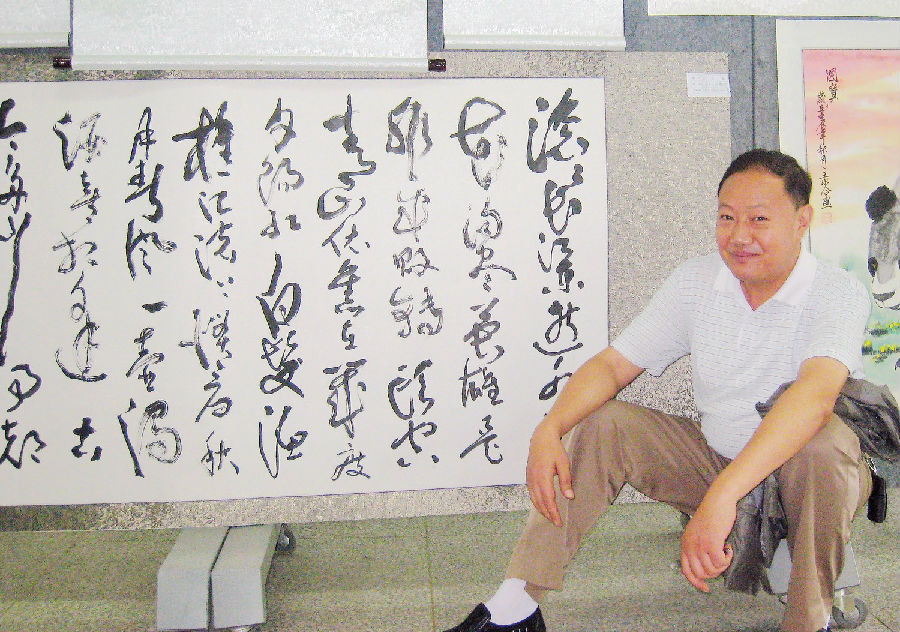 滚滚长江东逝水
花淘尽英雄是
非成败转头空
青山依旧在几度
夕阳红白发渔
樵江渚上惯看秋
月春风一壶浊
酒喜相逢古
今多少事
国宝